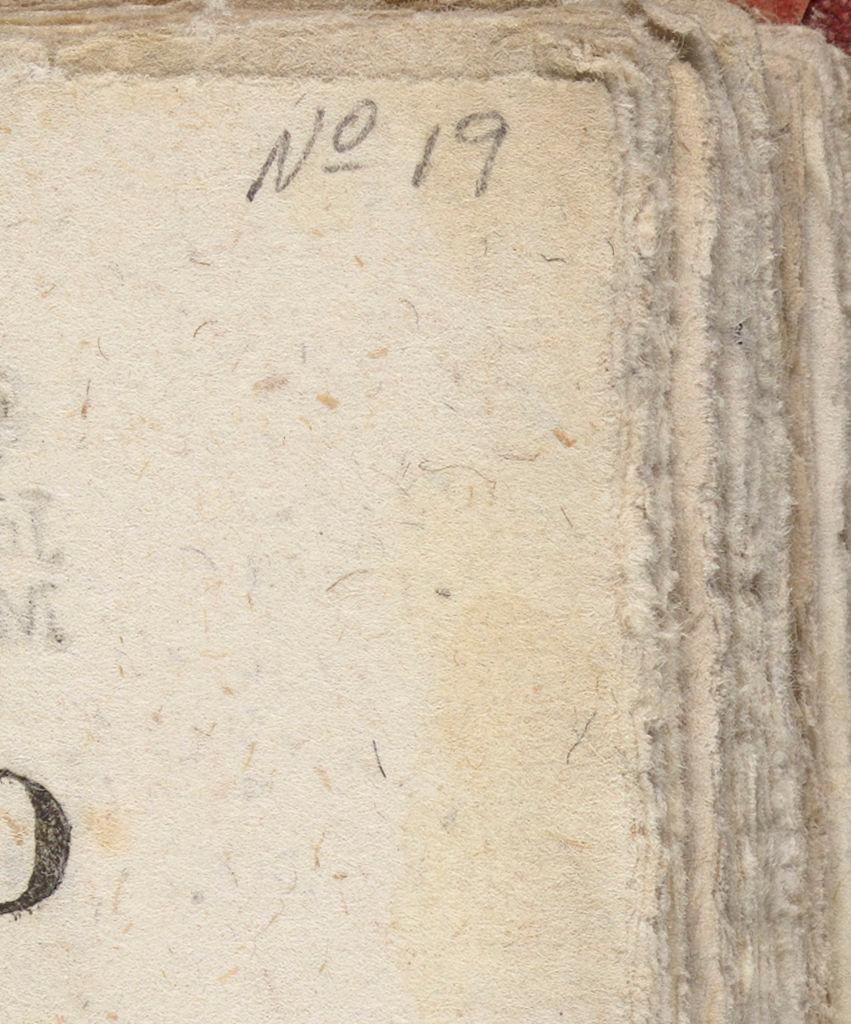 Nº 19
O